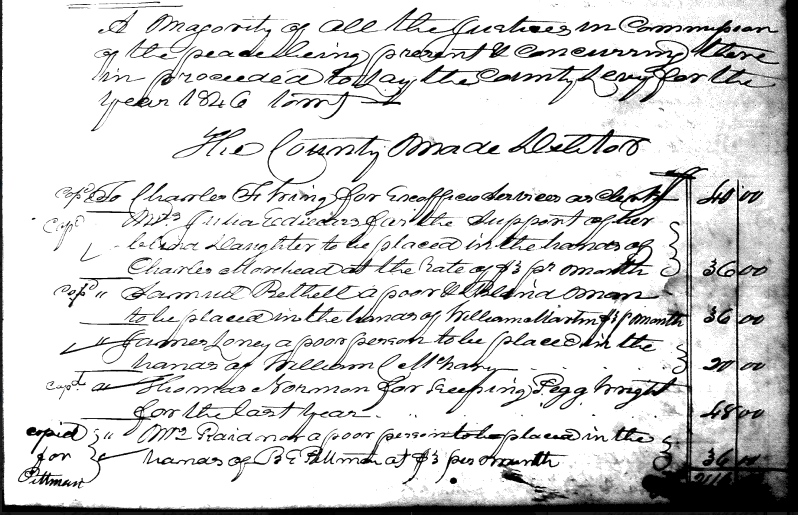 A Magority of all the Justices in Commission
of the peace being present & concurring there
in proceeded to lay the County Levy for the
year 1846 towit
The County Made Debtor
Cop'd To Charles F Wing for Exofficio Services as Clerk 40 00
Cop'd " Mrs Julia Edwards for the Support of her
blind Daughter to be placed in the hands of
Charles Morehead at the Rate of $3 pr month 36 00
Cop'd " Samuel Bethell a poor & Blind man
to be placed in the hands of William Martin $3 pr month 36 00
" James Loney a poor person to be placed in the
hands of William C McNary 20 00
Cop'd " Thomas Norman for keeping Pegg Wright
for the last year 48 00
copied " Mrs a poor person to be placed in the
for hands of R E Pittman at $3 per month 36 00
Pittman